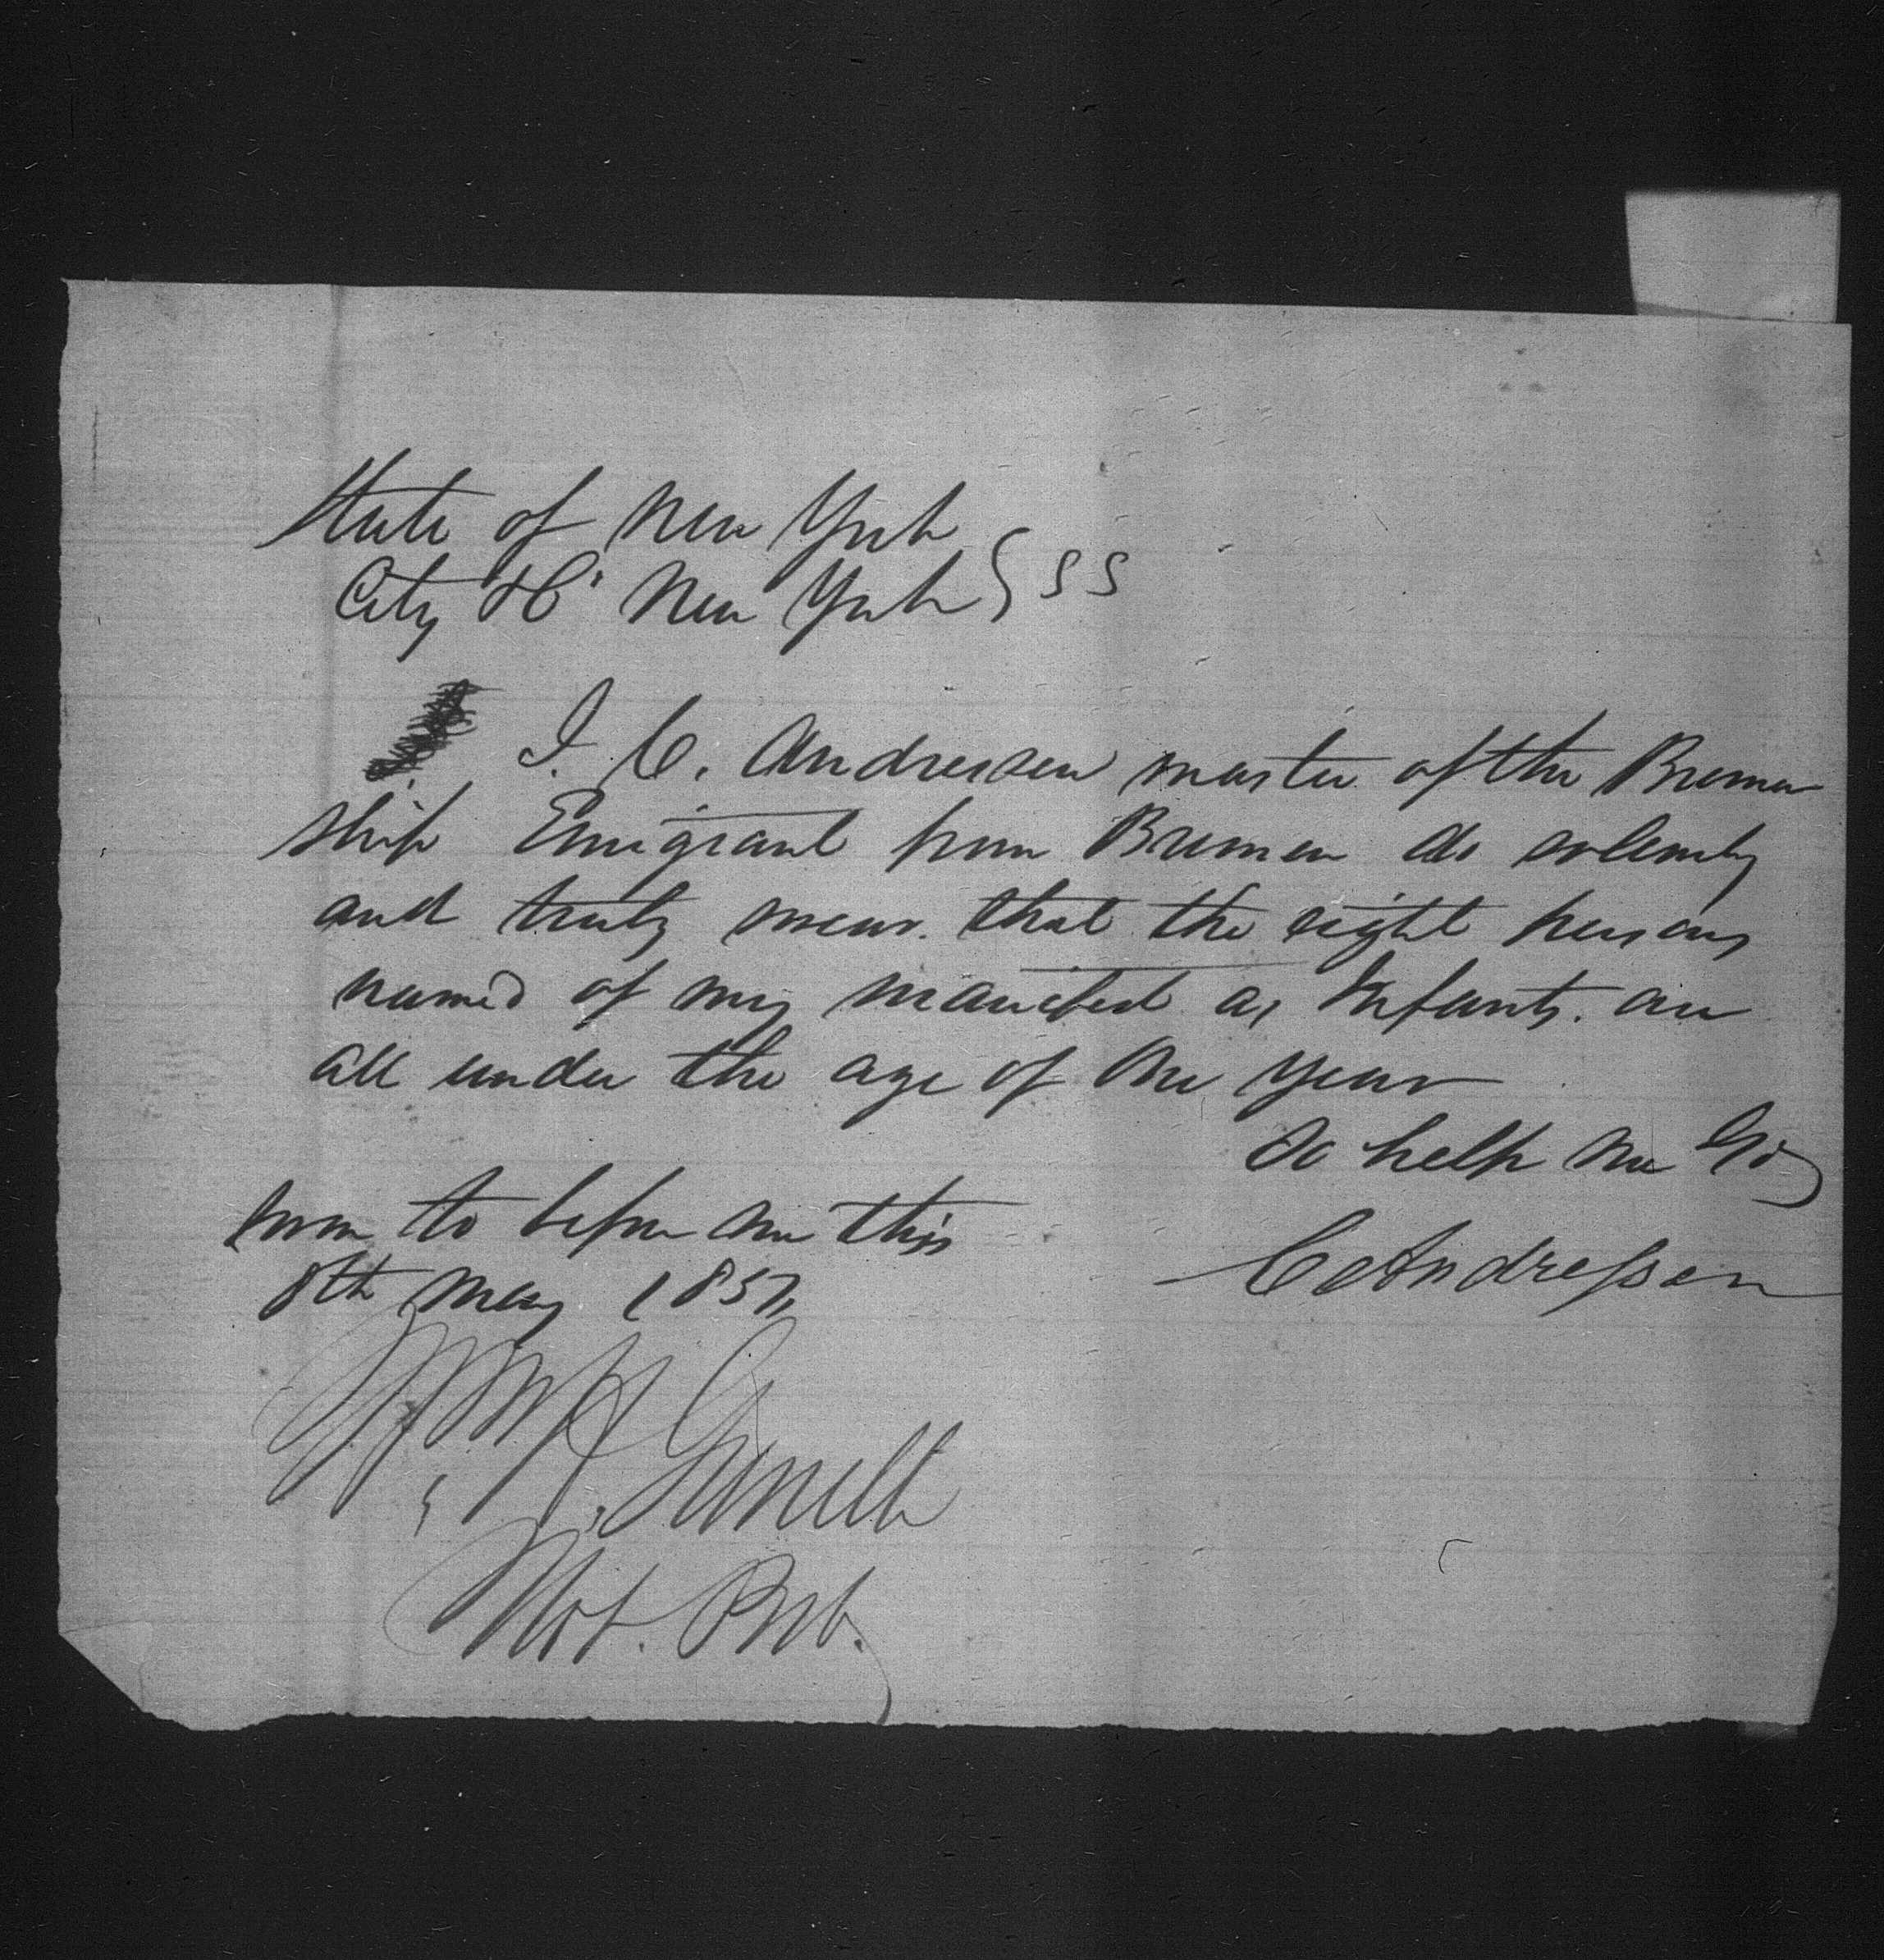 State of New York
City & Co New York } SS
I. C. Andressen master of the Bremen
ship Emigrant from Bremen do solemnly
and truly swear that the eight persons
named of my manifest as Infants. are
all under the age of One year
So help me God
Sworn to before me this
8th May 1857
C Andressen
Wm H
Not. Pub.